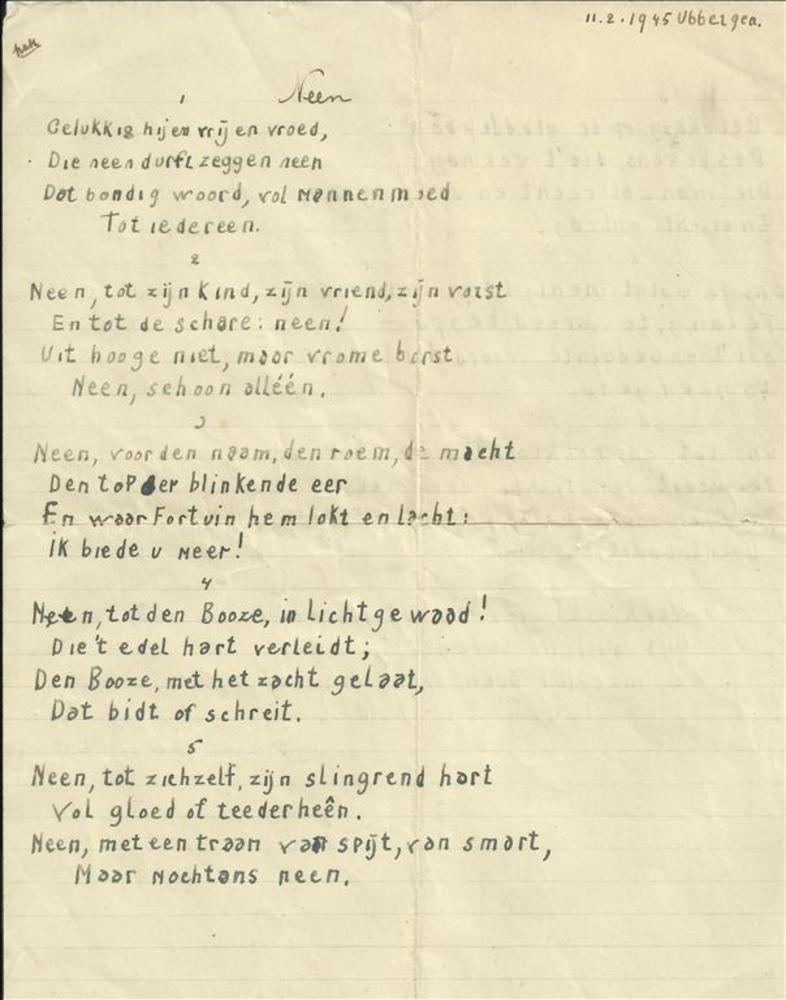 11.2.1945 Ubbergen.
Neen
1
Gelukkig hij en vrij en vroed,
Die neen durft zeggen neen
Dat bondig woord, vol mannenmoed
Tot iedereen.
2
Neen, tot zijn kind, zijn vriend, zijn vorst
En tot de schare: neen!
Uit hooge niet, maar vrome borst
Neen, schoon alléén.
3
Neen, voor den naam, den roem, de macht
Den top der blinkende eer
En waar Fortuin hem lokt en lacht:
ik biede u neer!
4
Neen, tot den Booze, in lichtgewaad!
Die 't edel hart verleidt;
Den Booze, met het zacht gelaat,
Dat bidt of schreit.
5
Neen, tot zichzelf, zijn slingrend hart
Vol gloed of teederheên.
Neen, met een traan van spijt, van smart,
Maar nochtans neen.